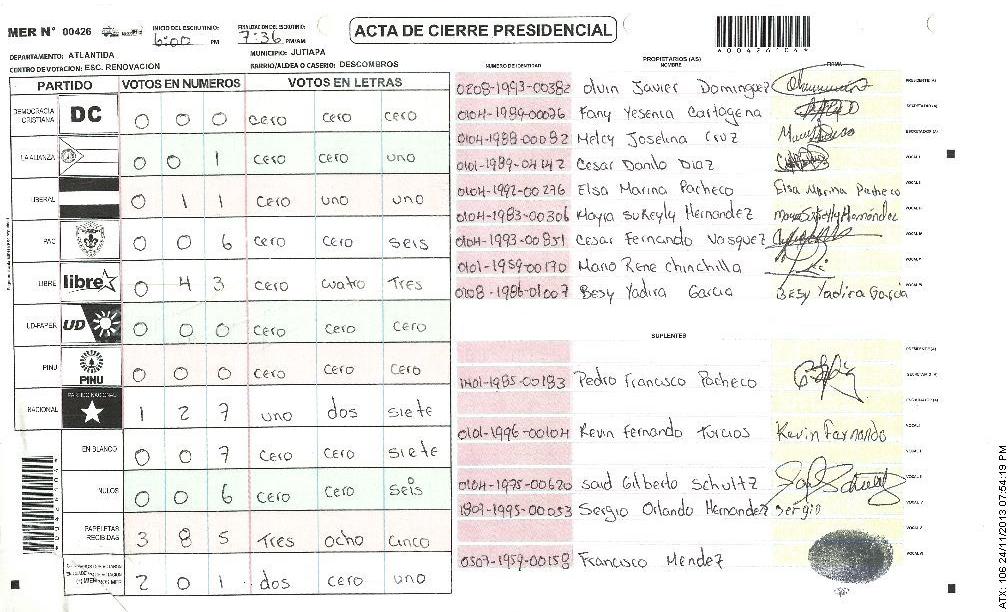 MER N° 00426
INICIO DEL ESCRUTINIO: 6:00 PM
FINALIZACION DEL ESCRUTINIO: 7:36 PM/AM
ACTA DE CIERRE PRESIDENCIAL
DEPARTAMENTO: ATLANTIDA
MUNICIPIO: JUTIAPA
CENTRO DE VOTACION: ESC. RENOVACION
BARRIO/ALDEA O CASERIO: DESCOMBROS
PARTIDO VOTOS EN NUMEROS VOTOS EN LETRAS
DEMOCRACIA CRISTIANA DC 0 0 0 cero cero cero
LA ALIANZA 0 0 1 cero cero uno
LIBERAL 0 1 1 cero uno uno
PAC 0 0 6 cero cero seis
LIBRE libre 0 4 3 cero cuatro Tres
UD-FAPER UD 0 0 0 cero cero cero
PINU PINU 0 0 0 cero cero cero
NACIONAL PARTIDO NACIONAL 1 2 7 uno dos siete
EN BLANCO 0 0 7 cero cero siete
NULOS 0 0 6 cero cero seis
PAPELETAS RECIBIDAS 3 8 5 Tres ocho cinco
2 0 1 dos cero uno
PROPIETARIOS (AS)
NUMERO DE IDENTIDAD NOMBRE FIRMA
0208-1993-00382 olvin Javier Dominguez PRESIDENTE (A)
0104-1989-00076 Fany Yesenia Cartagena SECRETARIO (A)
0104-1988-00082 Melcy Joselina Cruz
0101-1989-04142 Cesar Danilo Diaz VOCAL I
0104-1992-00276 Elsa Marina Pacheco Elsa Marina Pacheco
0104-1983-00306 Mayra sukeyly Hernandez
0104-1993-00851 Cesar Fernando Vasquez
0101-1959-00170 Mario Rene chinchilla
0108-1986-01007 Besy Yadira Garcia Besy Yadira Garcia
SUPLENTES
PRESIDENTE (A)
1401-1985-00183 Pedro Francisco Pacheco SECRETARIO (A)
0101-1996-00104 Kevin fernando Turcios Kevin Fernando
0104-1975-00620 said Gilberto Schultz
1809-1995-00053 Sergio Orlando Hernandez sergio
0507-1959-00158 Francisco Mendez
ATX: 106 24/11/2013 07:54:19 PM